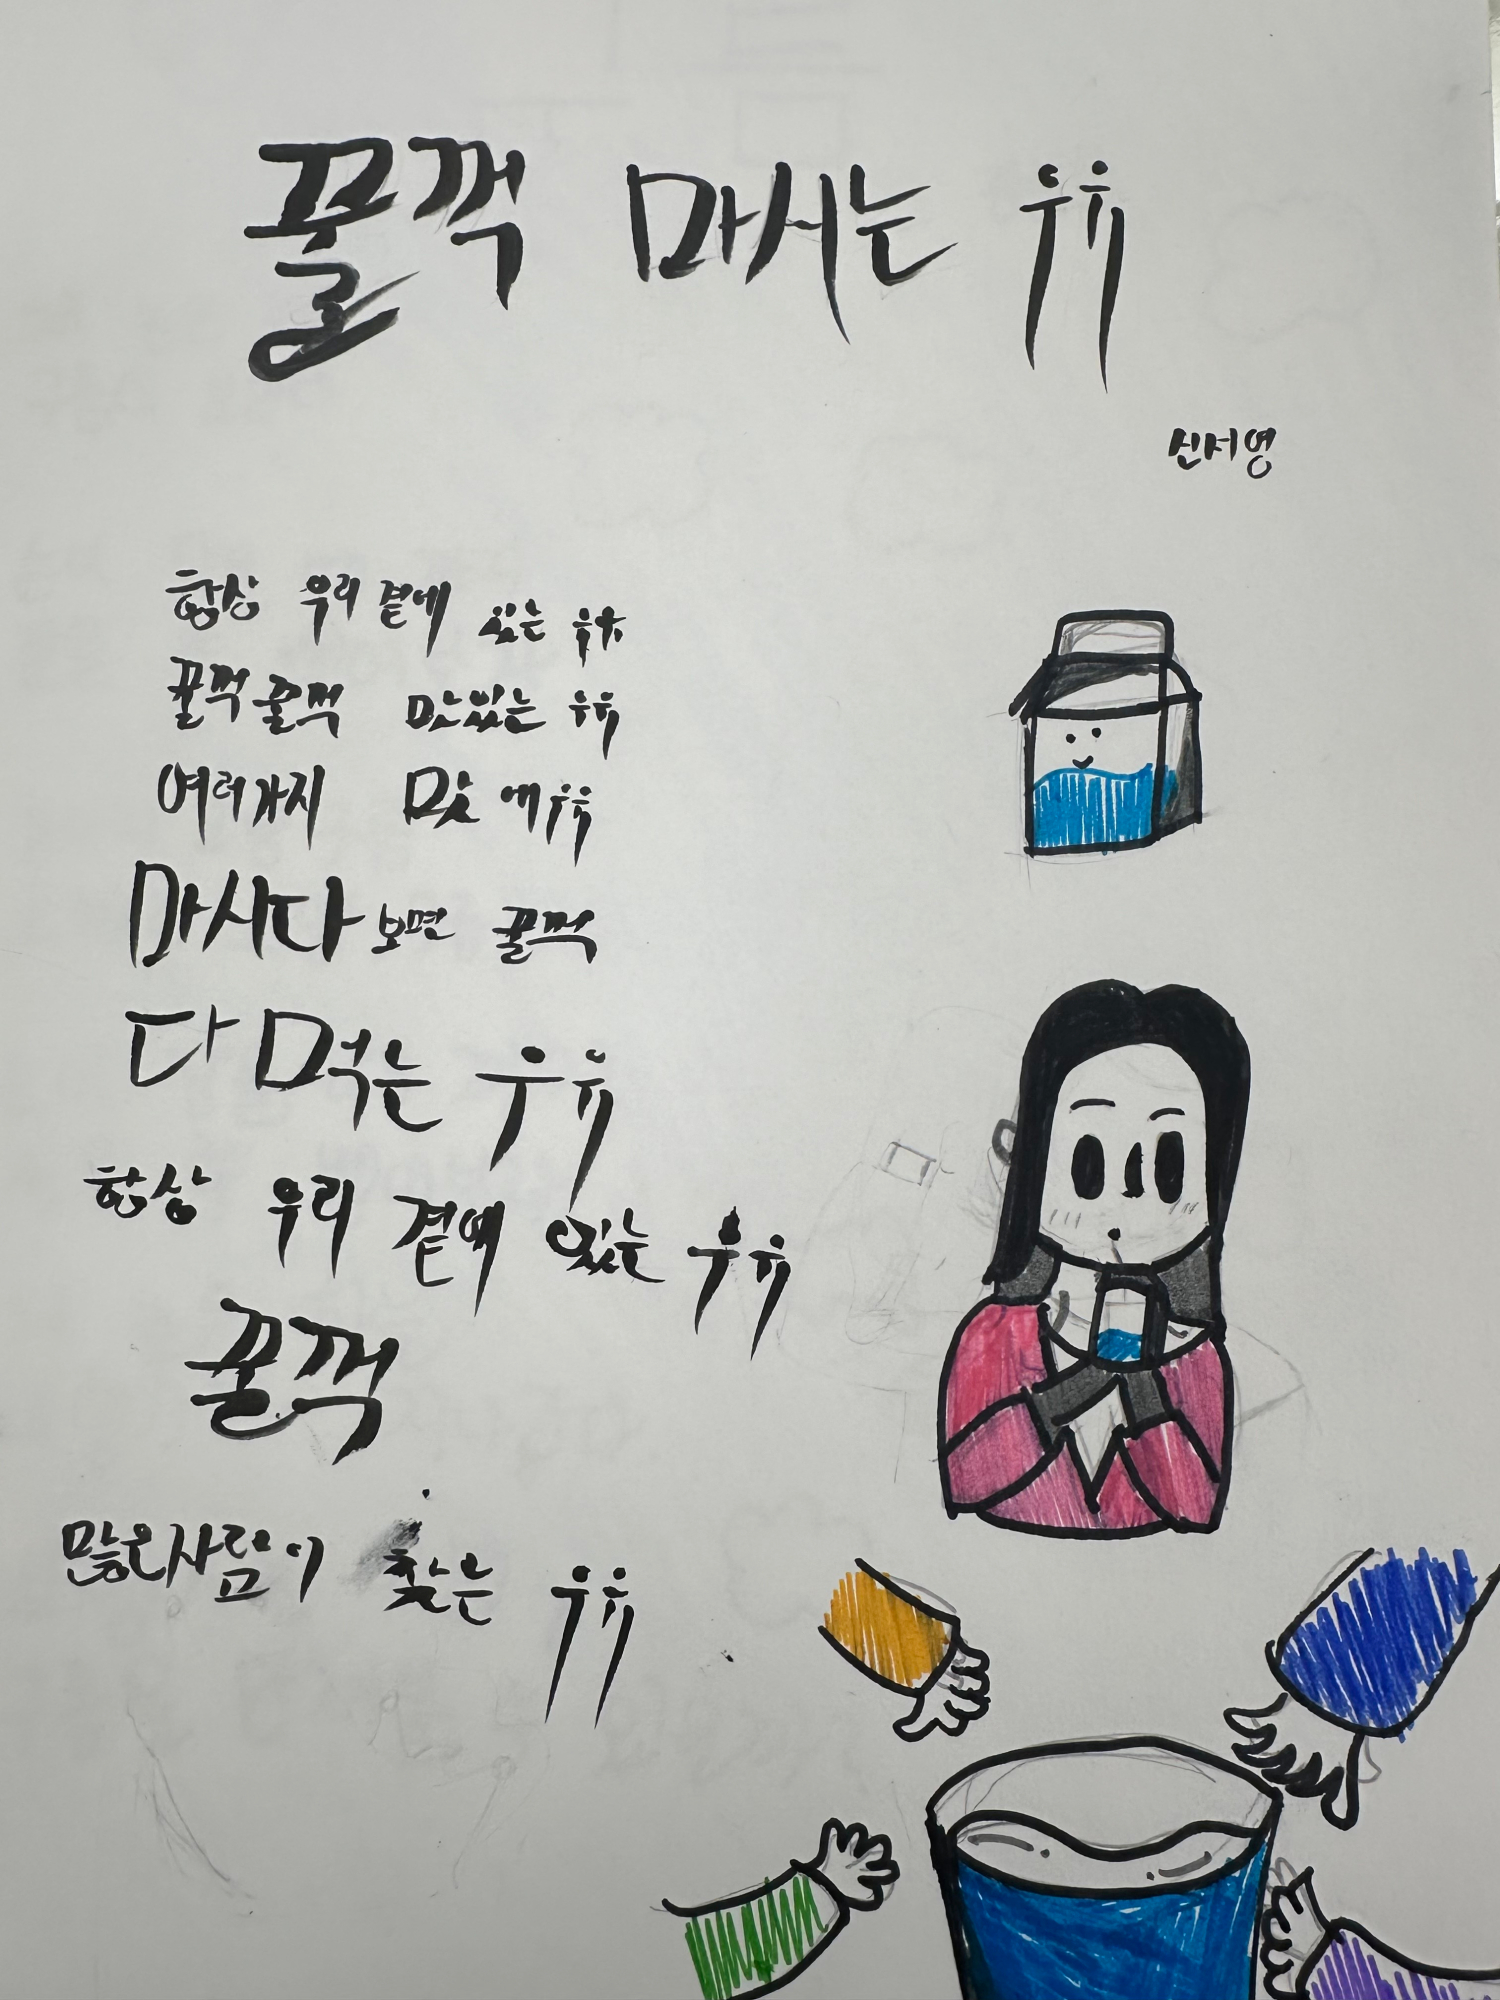 꿀꺽 마시는 우유
신서영
항상 우리 곁에 있는 우유
꿀꺽 꿀꺽 맛있는 우유
여러가지 맛 에 우유
마시다 보면 꿀꺽
다 먹는 우유
항상 우리 곁에 있는 우유
꿀꺽
많은사람이 찾는 우유